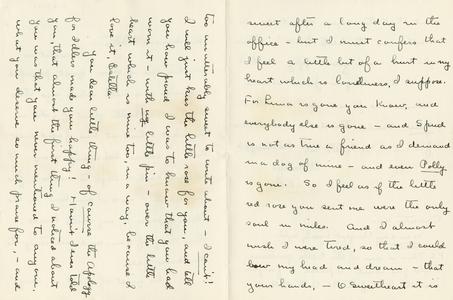 sweet after a long day in the
office - but I must confess that
I feel a little bit of a hurt in my
heart which is loneliness, I suppose.
For Lima is gone you know, and
everybody else is gone - and Spud
is not as true a friend as I demand
in a dog of mine - and even Polly
is gone. So I feel as if the little
red rose you sent me were the only
soul in miles. And I almost
wish I were tired, so that I could
bow my head and dream - that
your hands, - O Sweetheart it is
too unutterably sweet to write about - I can't!!
I will just kiss the little rose for you, and tell
you how proud I was to know that you had
worn it - with my little pin - over the little
heart which is mine too, in a way, because I
love it, Estella.
You dear little thing - of course the Apology
for Idlers made you happy! Haven't I ever told
you, that almost the first thing I noticed about
you was that you never mentioned to anyone,
what you deserve so much praise for, - and